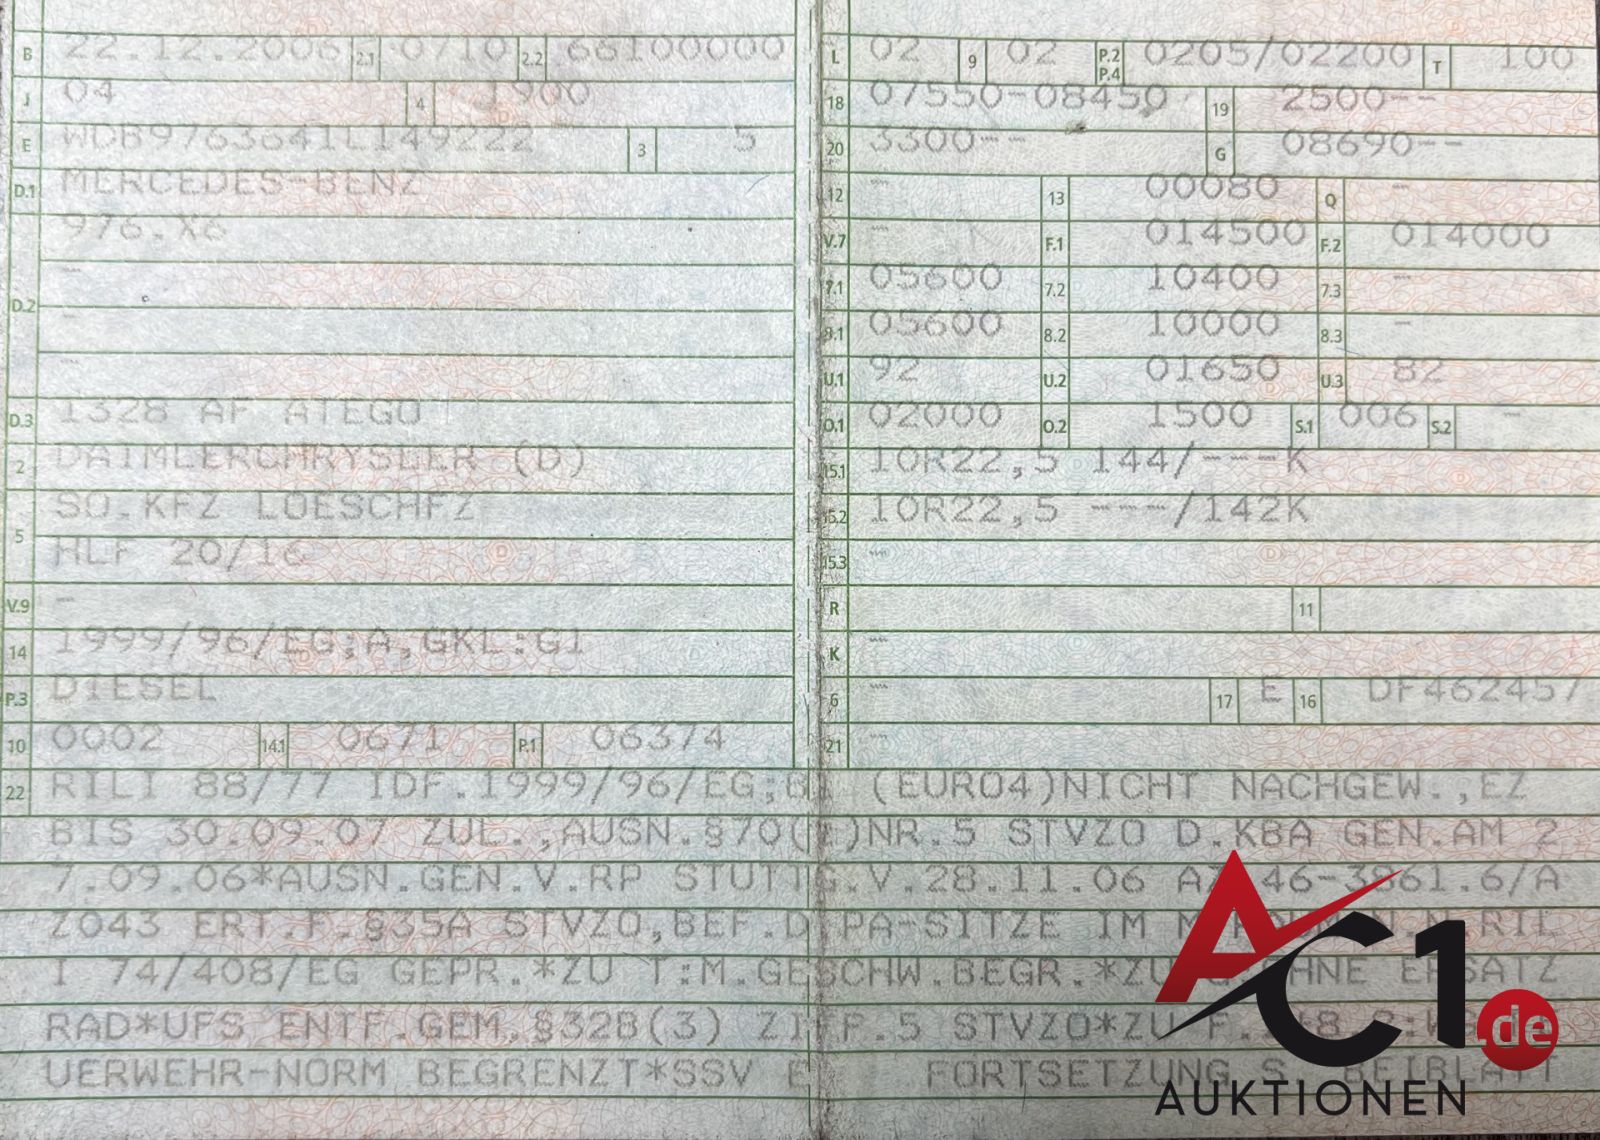 B 22.12.2006 2.1 0710 2.2 66100000
J 04 4 1900
E WDB9763641L149222 3 5
D.1 MERCEDES-BENZ
976.X6
-
D.2 -
-
D.3 1328 AF ATEGO
2 DAIMLERCHRYSLER (D)
5 SO.KFZ LOESCHFZ
HLF 20/16
V.9 -
14 1999/96/EG;A,GKL:G1
P.3 DIESEL
10 0002 14.1 0671 P.1 06374
L 02 9 02 P.2 P.4 0205/02200 T 100
18 07550-08450 19 2500--
20 3300-- G 08690--
12 - 13 00080 Q -
V.7 - F.1 014500 F.2 014000
7.1 05600 7.2 10400 7.3 -
8.1 05600 8.2 10000 8.3 -
U.1 92 U.2 01650 U.3 82
O.1 02000 O.2 1500 S.1 006 S.2 -
15.1 10R22,5 144/---K
15.2 10R22,5 ---/142K
15.3 -
R 11
K -
6 - 17 E 16 DF462457
21 -
22 RILI 88/77 IDF.1999/96/EG;B1 (EURO4)NICHT NACHGEW.,EZ
BIS 30.09.07 ZUL.,AUSN.§70(1)NR.5 STVZO D.KBA GEN.AM 2
7.09.06*AUSN.GEN.V.RP STUTTG.V.28.11.06 AZ 46-3861.6/A
ZO43 ERT.F.§35A STVZO,BEF.D PA-SITZE IM RIL
I 74/408/EG GEPR.*ZU T:M.GESCHW.BEGR.*ZU OHNE ERSATZ
RAD*UFS ENTF.GEM.§32B(3) ZIFF.5 STVZO*ZU
UERWEHR-NORM BEGRENZT*SSV FORTSETZUNG S. BEIBLATT
AC1.de
AUKTIONEN